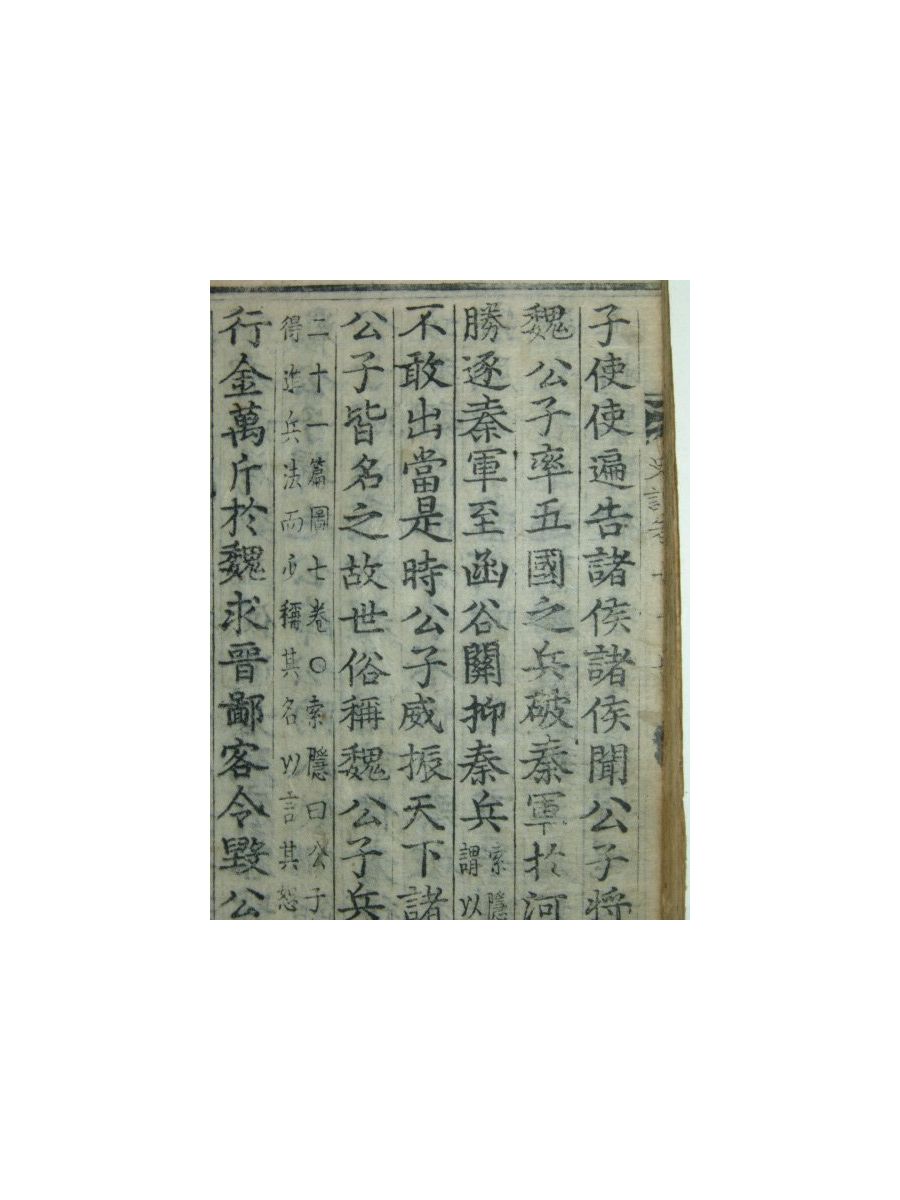 子使使遍告諸侯諸侯聞公子將
魏公子率五國之兵破秦軍於河
勝逐秦軍至函谷關抑秦兵
索隱
謂以
不敢出當是時公子威振天下諸
公子皆名之故世俗稱魏公子兵
二十一篇圖七卷〇索隱曰公子
得進兵法而必稱其名以言其恕
行金萬斤於魏求晉鄙客令毀公